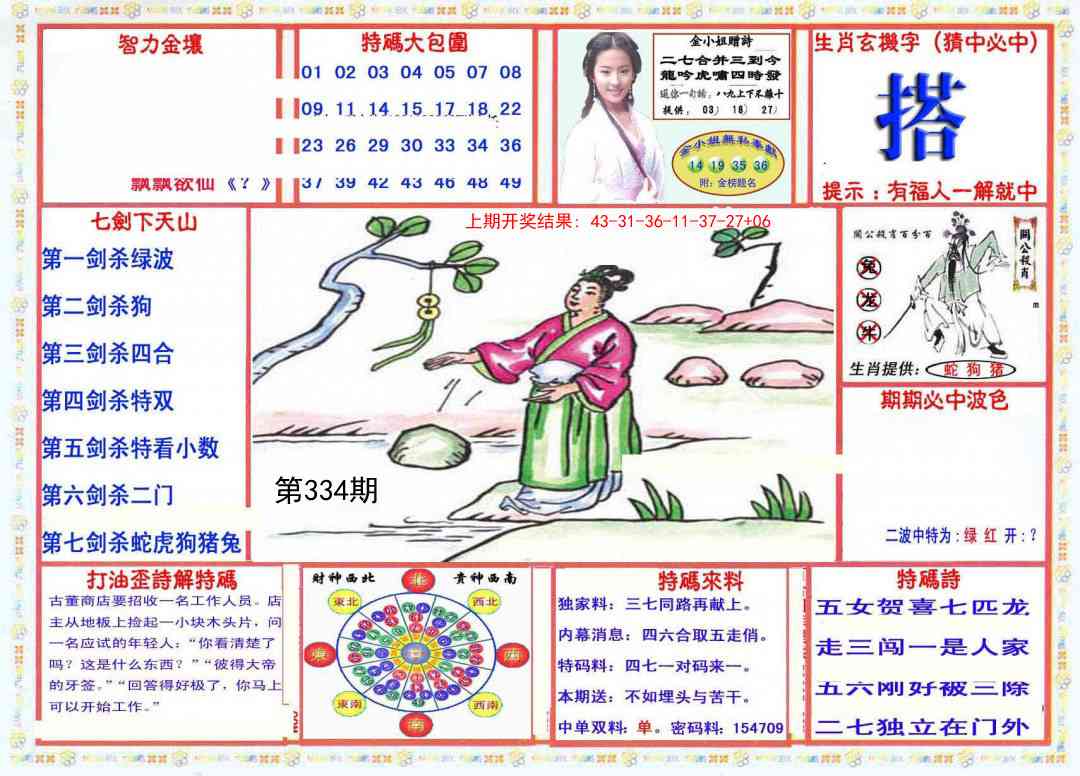 智力金壤
飘飘欲仙《？》
特碼大包圍
01 02 03 04 05 07 08
09 11 14 15 17 18 22
23 26 29 30 33 34 36
37 39 42 43 46 48 49
金小姐贈詩
二七合并三到今
龍吟虎嘯四時發
八九上下不離十
提供， 03） 18） 27）
金小姐無私奉獻
14 19 35 36
附：金榜题名
生肖玄機字（猜中必中）
搭
提示：有福人一解就中
七劍下天山
第一剑杀绿波
第二剑杀狗
第三剑杀四合
第四剑杀特双
第五剑杀特看小数
第六剑杀二门
第七剑杀蛇虎狗猪兔
上期开奖结果：43-31-36-11-37-27+06
第334期
關公殺肖百分百
關公殺肖
兔
龙
牛
生肖提供：蛇 狗 猪
期期必中波色
二波中特为：绿 红 开：？
打油歪詩解特碼
古董商店要招收一名工作人员。店
主从地板上捡起一小块木头片，问
一名应试的年轻人：“你看清楚了
吗？这是什么东西？”“彼得大帝
的牙签。”“回答得好极了，你马上
可以开始工作。”
財神西北 貴神西南
北
東北
西北
東
西
東南
西南
南
特碼來料
独家料：三七同路再献上。
内幕消息：四六合取五走俏。
特码料：四七一对码来一。
本期送：不如埋头与苦干。
中单双料：单。密码料：154709
特碼詩
五女贺喜七匹龙
走三闯一是人家
五六刚好被三除
二七独立在门外